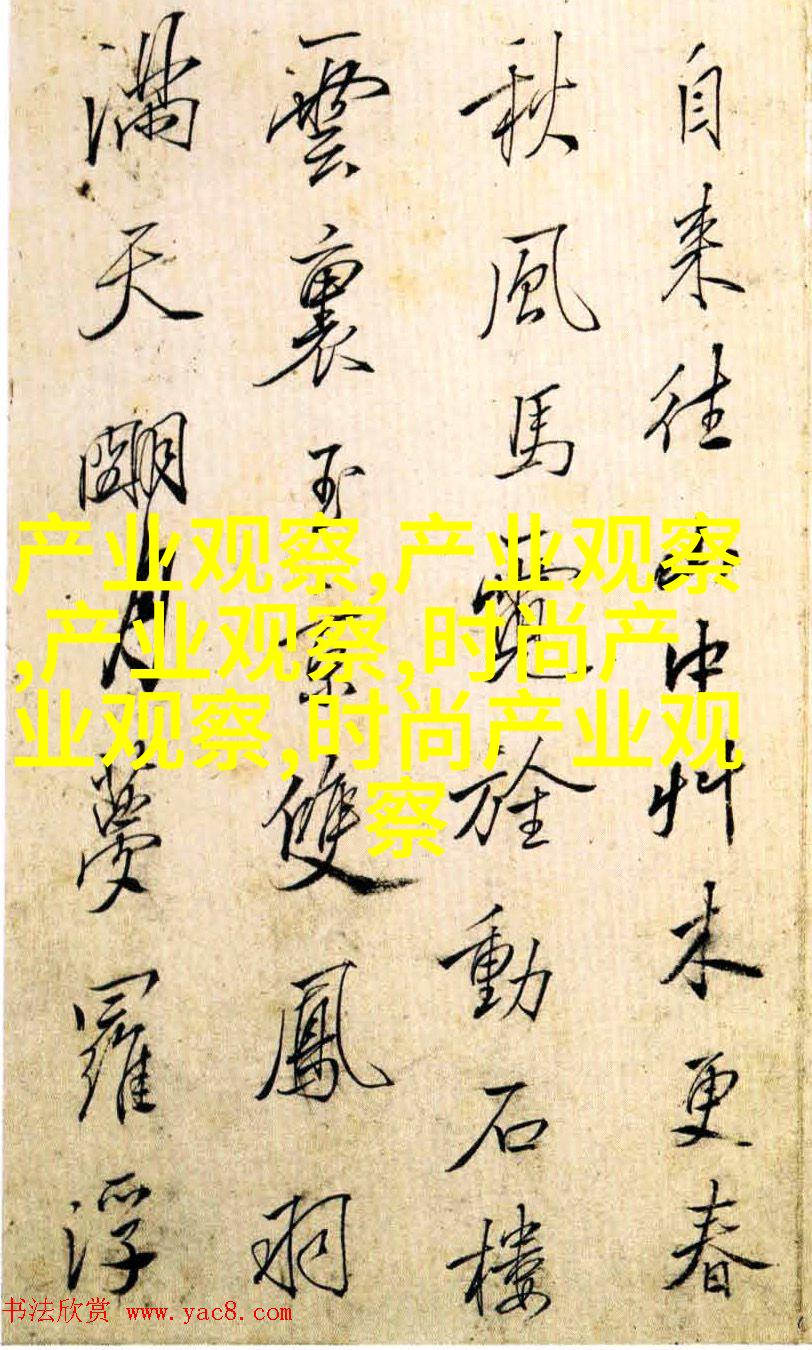 自来往山中艸木更春
秋風馬霓旌動石樓
雲裏玉京雙鳳羽
滿天朙月夢羅浮
产业观察,产业观察
,产业观察,时尚产
业观察,时尚产业观
察
书法欣赏 www.yac8.com